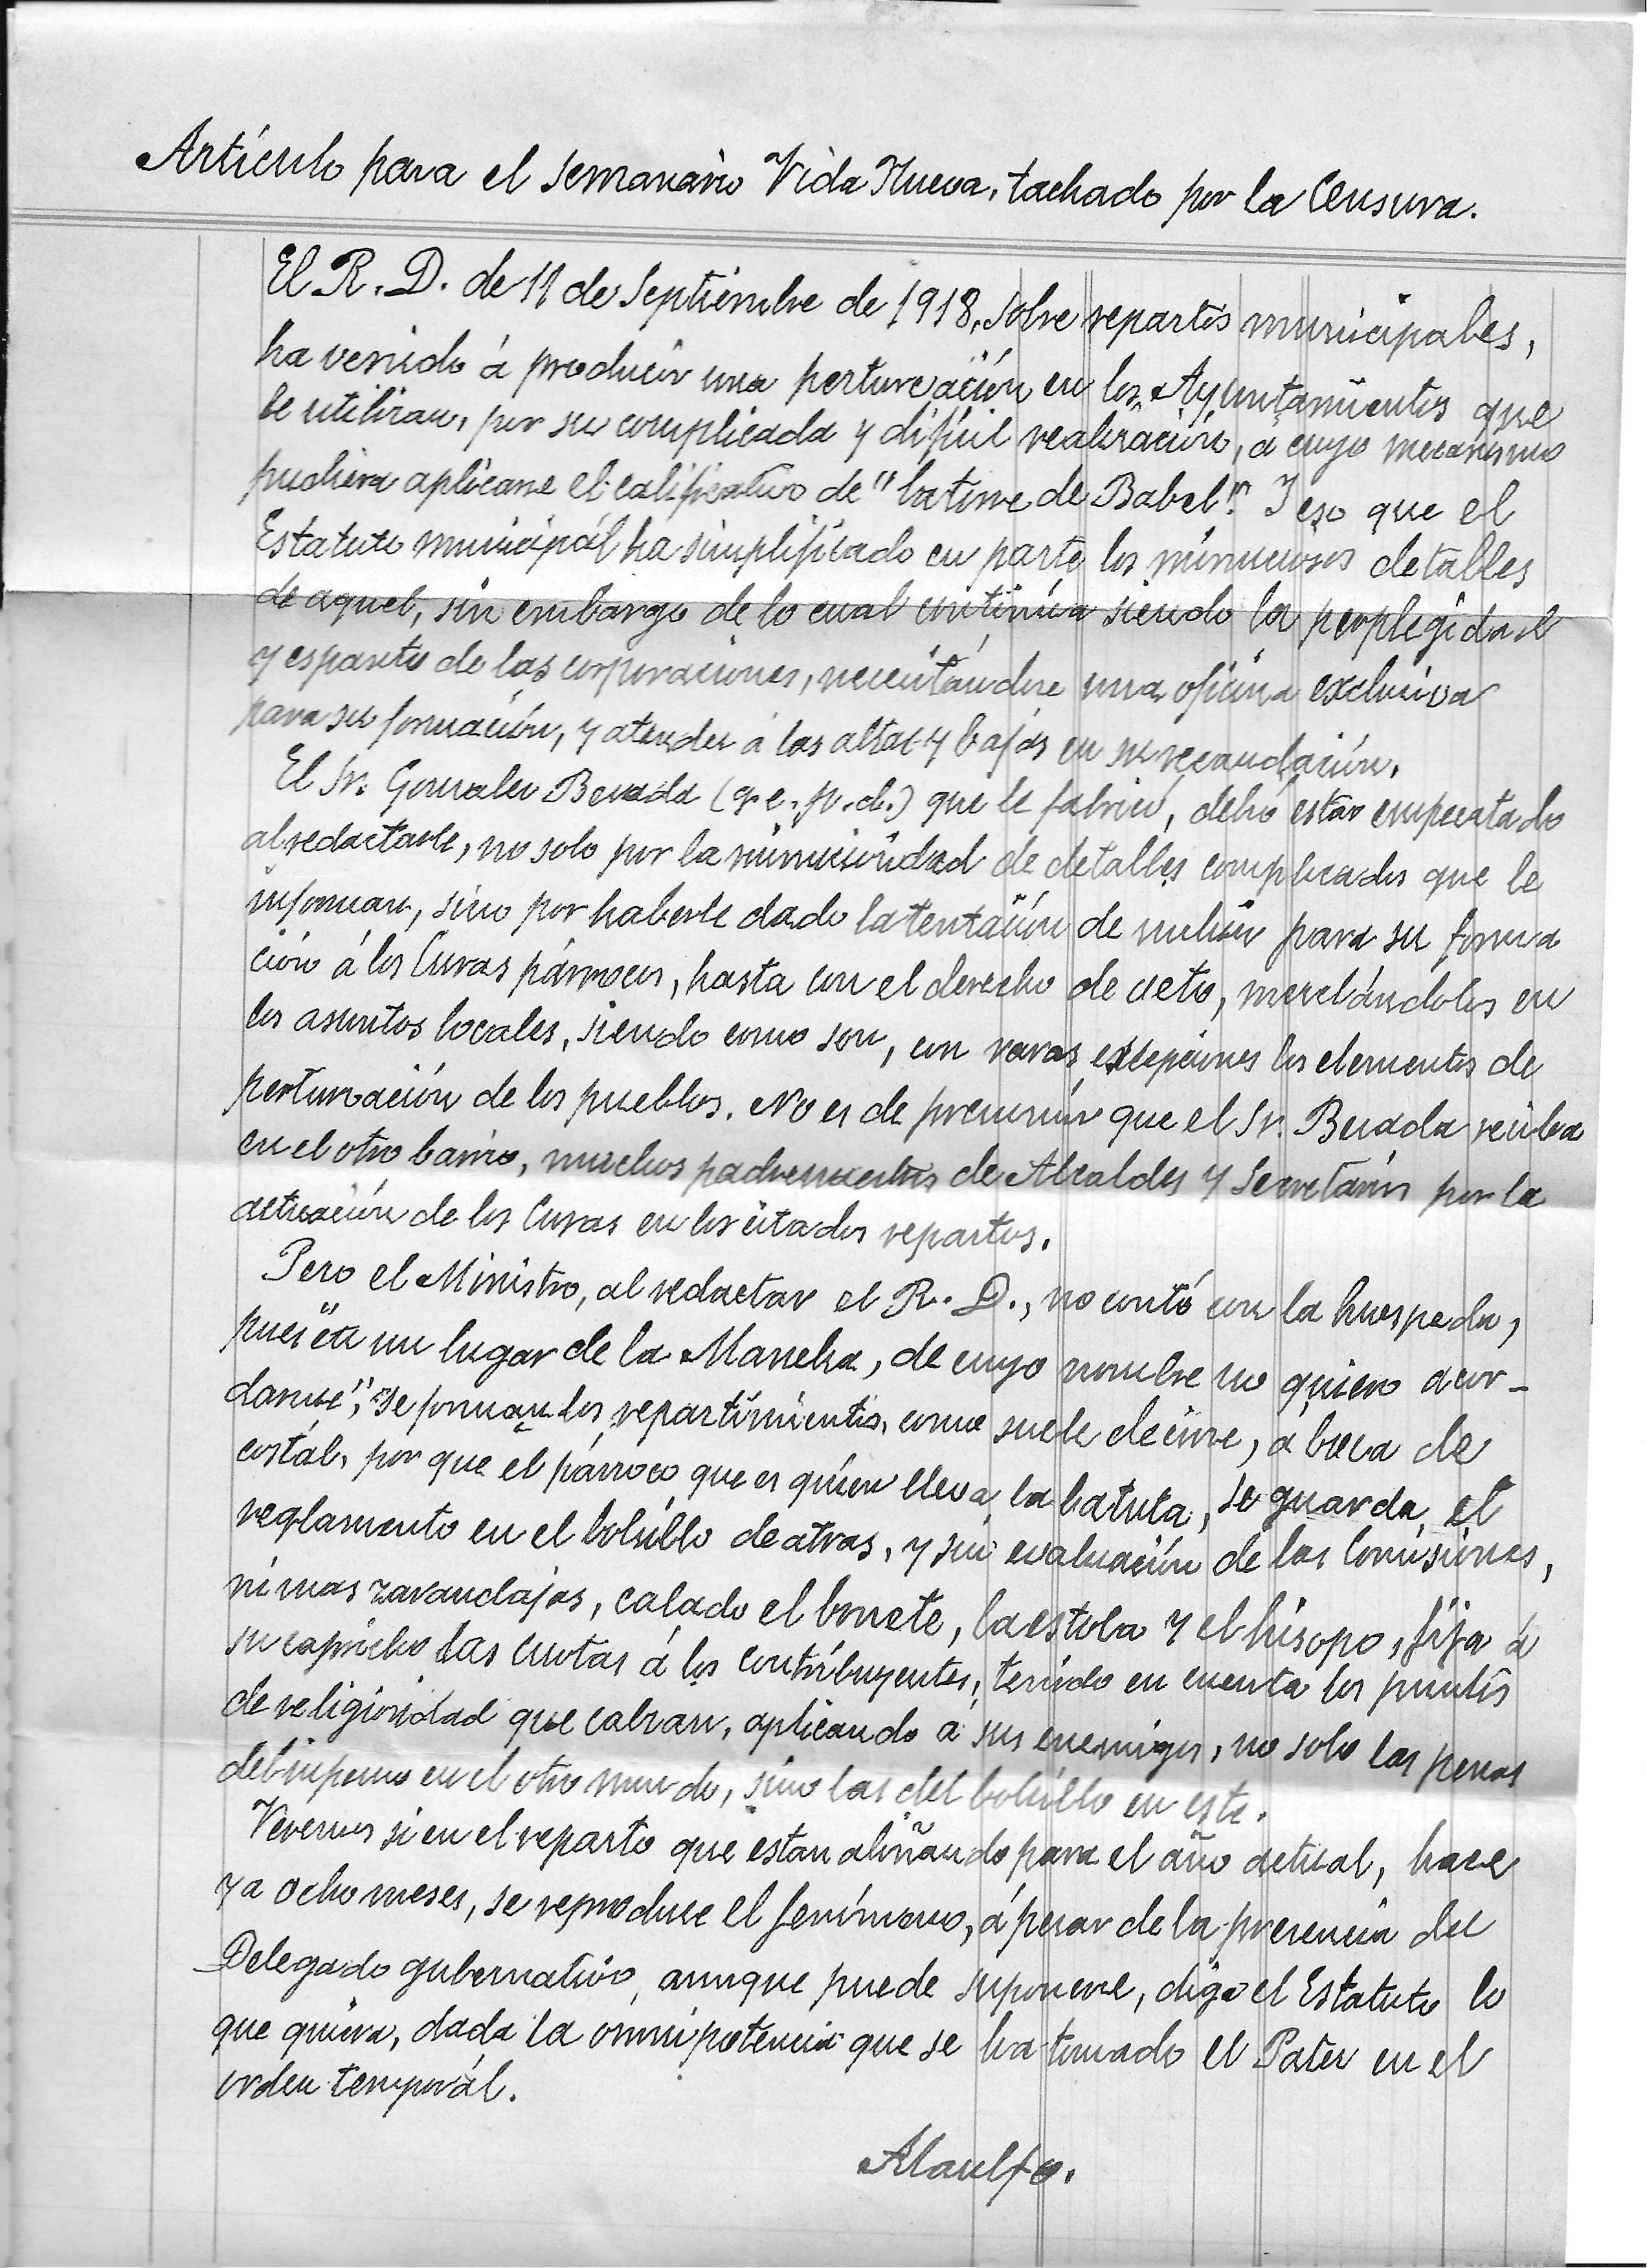 Artículo para el semanario Vida Nueva, tachado por la Censura.
El R. D. de 11 de Septiembre de 1918, sobre repartos municipales,
ha venido á producir una perturvación en los Ayuntamientos que
le utilizan, por su complicada y difícil realización, á cuyo mecanismo
pudiera aplicarse el calificativo de "la torre de Babel". Y eso que el
Estatuto municipál ha simplificado en parte los minuciosos detalles
de aquel, sin embargo de lo cual continúa siendo la perplegidad
y espanto de las corporaciones, necesitándose una oficina exclusiva
para su formación, y atender á las altas y bajas en su recaudación.
El Sr. Gonzalez Besada (q. e. p. d.) que le fabricó, debió estar empecatado
al redactarle, no solo por la minuciosidad de detalles complicados que le
informan, sino por haberle dado la tentación de incluir para su forma
ción á los Curas párrocos, hasta con el derecho de veto, mezclándolos en
los asuntos locales, siendo como son, con raras excepciones los elementos de
perturvación de los pueblos. No es de presumir que el Sr. Besada reciba
en el otro barrio, muchos padrenuestros de Alcaldes y Secretarios por la
actuación de los Curas en los citados repartos.
Pero el Ministro, al redactar el R. D., no contó con la huespeda,
pues "en un lugar de la Mancha, de cuyo nombre no quiero acor-
darme", se forman los repartimientos, como suele decirse, á boca de
costál, por que el párroco que es quien lleva la batuta, se guarda el
reglamento en el bolsillo de atras, y sin evaluación de las Comisiones,
ni mas zarandajas, calado el bonete, la estola y el hisopo, fija á
su capricho las cuotas á los contribuyentes, tenido en cuenta los puntos
de religiosidad que calzan, aplicando á sus enemigos, no solo las penas
del infierno en el otro mundo, sino las del bolsillo en este.
Veremos si en el reparto que estan aliñando para el año actual, hace
ya ocho meses, se reproduce el fenómeno, á pesar de la presencia del
Delegado gubernativo, aunque puede suponerse, diga el Estatuto lo
que quiera, dada la omnipotencia que se ha tomado el Pater en el
orden temporál.
Ataulfo.